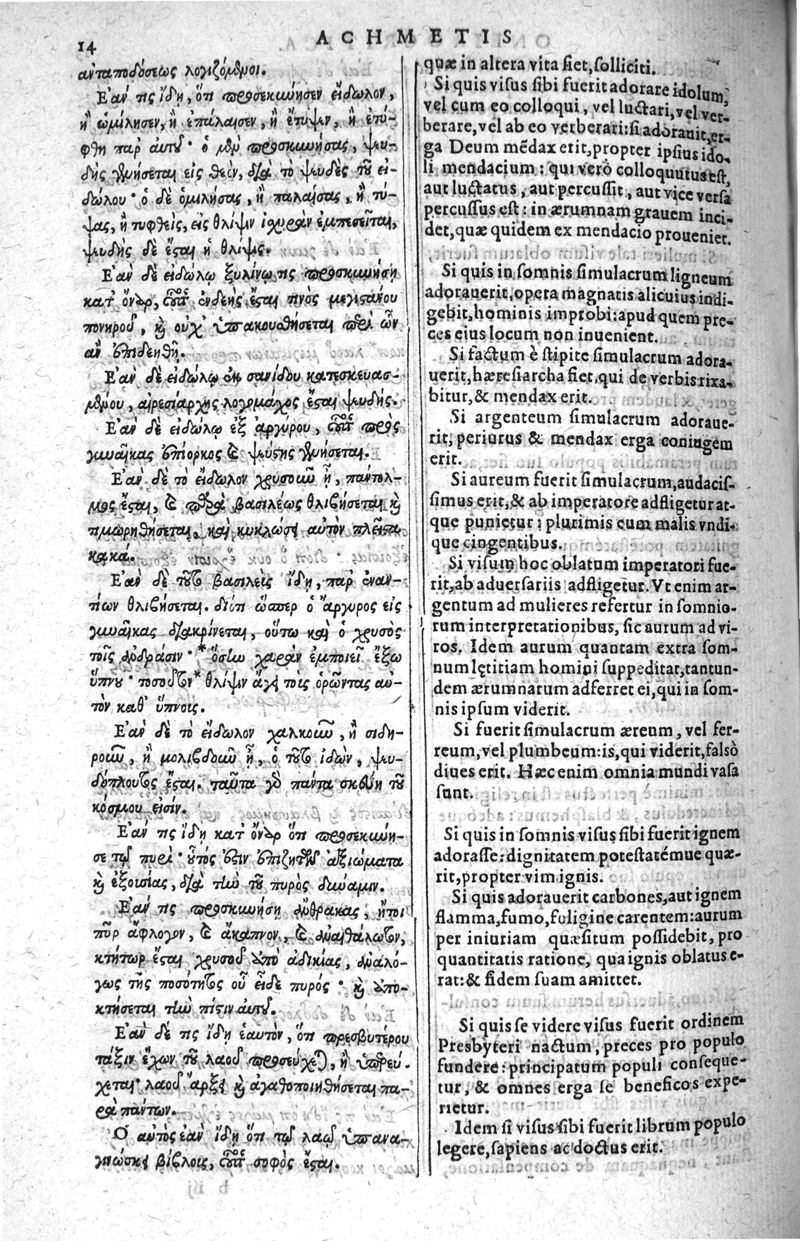 14
ACHMETIS
ἀνταποδόσεως λογιζόμενοι.
Ἐάν τις ἴδῃ, ὅτι προσεκύνησεν εἴδωλον,
ἢ ὡμίλησεν, ἢ ἐπάλαισεν, ἢ ἔτυψεν, ἢ ἐτύ-
φθη παρ αὐτοῦ· ὁ μὲν προσκυνήσας, ψευ-
δὴς γενήσεται εἰς θεὸν, διὰ τὸ ψευδὲς τοῦ εἰ-
δώλου· ὁ δὲ ὁμιλήσας, ἢ παλαίσας, ἢ τύ-
ψας, ἢ τυφθεὶς, εἰς θλῖψιν ἰσχυρὰν ἐμπεσεῖται,
ψευδὴς δὲ ἔσται ἡ θλίψις.
Ἐὰν δὲ εἰδώλῳ ξυλίνῳ τις προσκυνήσῃ
κατ ὄναρ, οὗτος ἐνδεὴς ἔσται τινὸς μεγιστάνου
πονηροῦ, καὶ οὐχ ὑπακουσθήσεται περὶ ὧν
ἂν ἐπιδεηθῇ.
Ἐὰν δὲ εἰδώλῳ ἐκ σανίδου κατεσκευασ-
μένῳ, αἱρεσιάρχης λογομάχος ἔσται ψευδής.
Ἐὰν δὲ εἰδώλῳ ἐξ ἀργύρου, οὗτος πρὸς
γυναῖκας ἐπίορκος καὶ ψεύστης γενήσεται.
Ἐὰν δὲ τὸ εἴδωλον χρυσοῦν ᾖ, πάντολ-
μος ἔσται, καὶ παρὰ βασιλέως θλιβήσεται καὶ
τιμωρηθήσεται, καὶ κυκλώσῃ αὐτὸν πλεῖστα
κακά.
Ἐὰν δὲ τοῦτο βασιλεὺς ἴδῃ, παρ ἐναν-
τίων θλιβήσεται. διότι ὥσπερ ὁ ἄργυρος εἰς
γυναῖκας διακρίνεται, οὕτω καὶ ὁ χρυσὸς
τοῖς ἀνδράσιν· *ὅσην χαρὰν ἐμποιεῖ ἔξω
ὕπνου· τοσοῦτον* θλίψιν ἄγει τοῖς ὁρῶντας αὐ-
τὸν καθ' ὕπνοις.
Ἐὰν δὲ τὸ εἴδωλον χαλκοῦν, ἢ σιδη-
ροῦν, ἢ μολιβδοῦν ᾖ, ὁ τοῦτο ἰδὼν, ψευ-
δόπλουτος ἔσται. ταῦτα γὰρ πάντα σκεύη τοῦ
κόσμου εἰσίν.
Ἐάν τις ἴδῃ κατ ὄναρ ὅτι προσεκύνη-
σε τῷ πυρί· οὗτός ἐστιν ἐπιζητῶν ἀξιώματα
καὶ ἐξουσίας, διὰ τὴν τοῦ πυρὸς δύναμιν.
Ἐάν τις προσκυνήσῃ ἄνθρακας, ἤτοι
πῦρ ἄφλογον, καὶ ἄκαπνον, καὶ ἀναίθαλωτον,
κτήτωρ ἔσται χρυσοῦ ὑπὸ ἀδικίας, ἀναλό-
γως τῆς ποσότητος οὗ εἶδε πυρός· καὶ ἀπο-
κτήσεται τὴν πίστιν αὐτοῦ.
Ἐὰν δέ τις ἴδῃ ἑαυτὸν, ὅτι πρεσβυτέρου
τάξιν ἔχων τοῦ λαοῦ προσεύχεται, ἢ ὑπερεύ-
χεται λαοῦ ἄρξει καὶ ἀγαθοποιηθήσεται πα-
ρὰ πάντων.
Ὁ αὐτὸς ἐὰν ἴδῃ ὅτι τῷ λαῷ ὑπανα-
γινώσκει βίβλοις, οὗτος σοφὸς ἔσται.
quæ in altera vita fiet, solliciti.
Si quis visus sibi fuerit adorare idolum,
vel cum eo colloqui, vel luctari, vel ver-
berare, vel ab eo verberari: si adorauit, er-
ga Deum mēdax erit, propter ipsius ido-
li mendacium: qui verò colloquutus est,
aut luctatus, aut percussit, aut vice versa
percussus est: in ærumnam grauem inci-
det, quæ quidem ex mendacio proueniet.
Si quis in somnis simulacrum ligneum
adorauerit, opera magnatis alicuius indi-
gebit, hominis improbi: apud quem pre-
ces eius locum non inuenient.
Si factum è stipite simulacrum adora-
uerit, hæresiarcha fiet, qui de verbis rixa-
bitur, & mendax erit.
Si argenteum simulacrum adoraue-
rit, periurus & mendax erga coniugem
erit.
Si aureum fuerit simulacrum, audacis-
simus erit, & ab imperatore adfligetur at-
que punietur: plurimis eum malis vndi-
que cingentibus.
Si visum hoc oblatum imperatori fue-
rit, ab aduersariis adfligetur. Vt enim ar-
gentum ad mulieres refertur in somnio-
rum interpretationibus, sic aurum ad vi-
ros. Idem aurum quantam extra som-
num lętitiam homini suppeditat, tantun-
dem ærumnatum adferret ei, qui in som-
nis ipsum viderit.
Si fuerit simulacrum æreum, vel fer-
reum, vel plumbeum: is, qui viderit, falsò
diues erit. Hæc enim omnia mundi vasa
sunt.
Si quis in somnis visus sibi fuerit ignem
adorasse: dignitatem potestatémue quæ-
rit, propter vim ignis.
Si quis adorauerit carbones, aut ignem
flamma, fumo, fuligine carentem: aurum
per iniuriam quæsitum possidebit, pro
quantitatis ratione, qua ignis oblatus e-
rat: & fidem suam amittet.
Si quis se videre visus fuerit ordinem
Presbyteri nactum, preces pro populo
fundere: principatum populi conseque-
tur, & omnes erga se beneficos expe-
rietur.
Idem si visus sibi fuerit librum populo
legere, sapiens ac doctus erit.